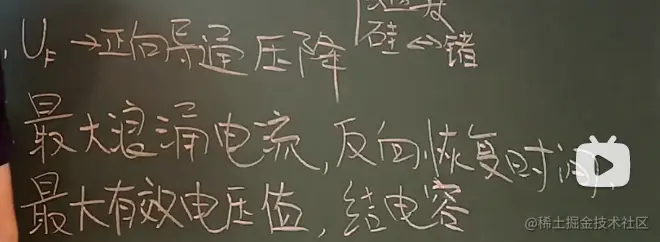 硅↔锗
, U_F → 正向导通压降
最大浪涌电流, 反向恢复时间,
最大有效电压值, 结电容
@稀土掘金技术社区